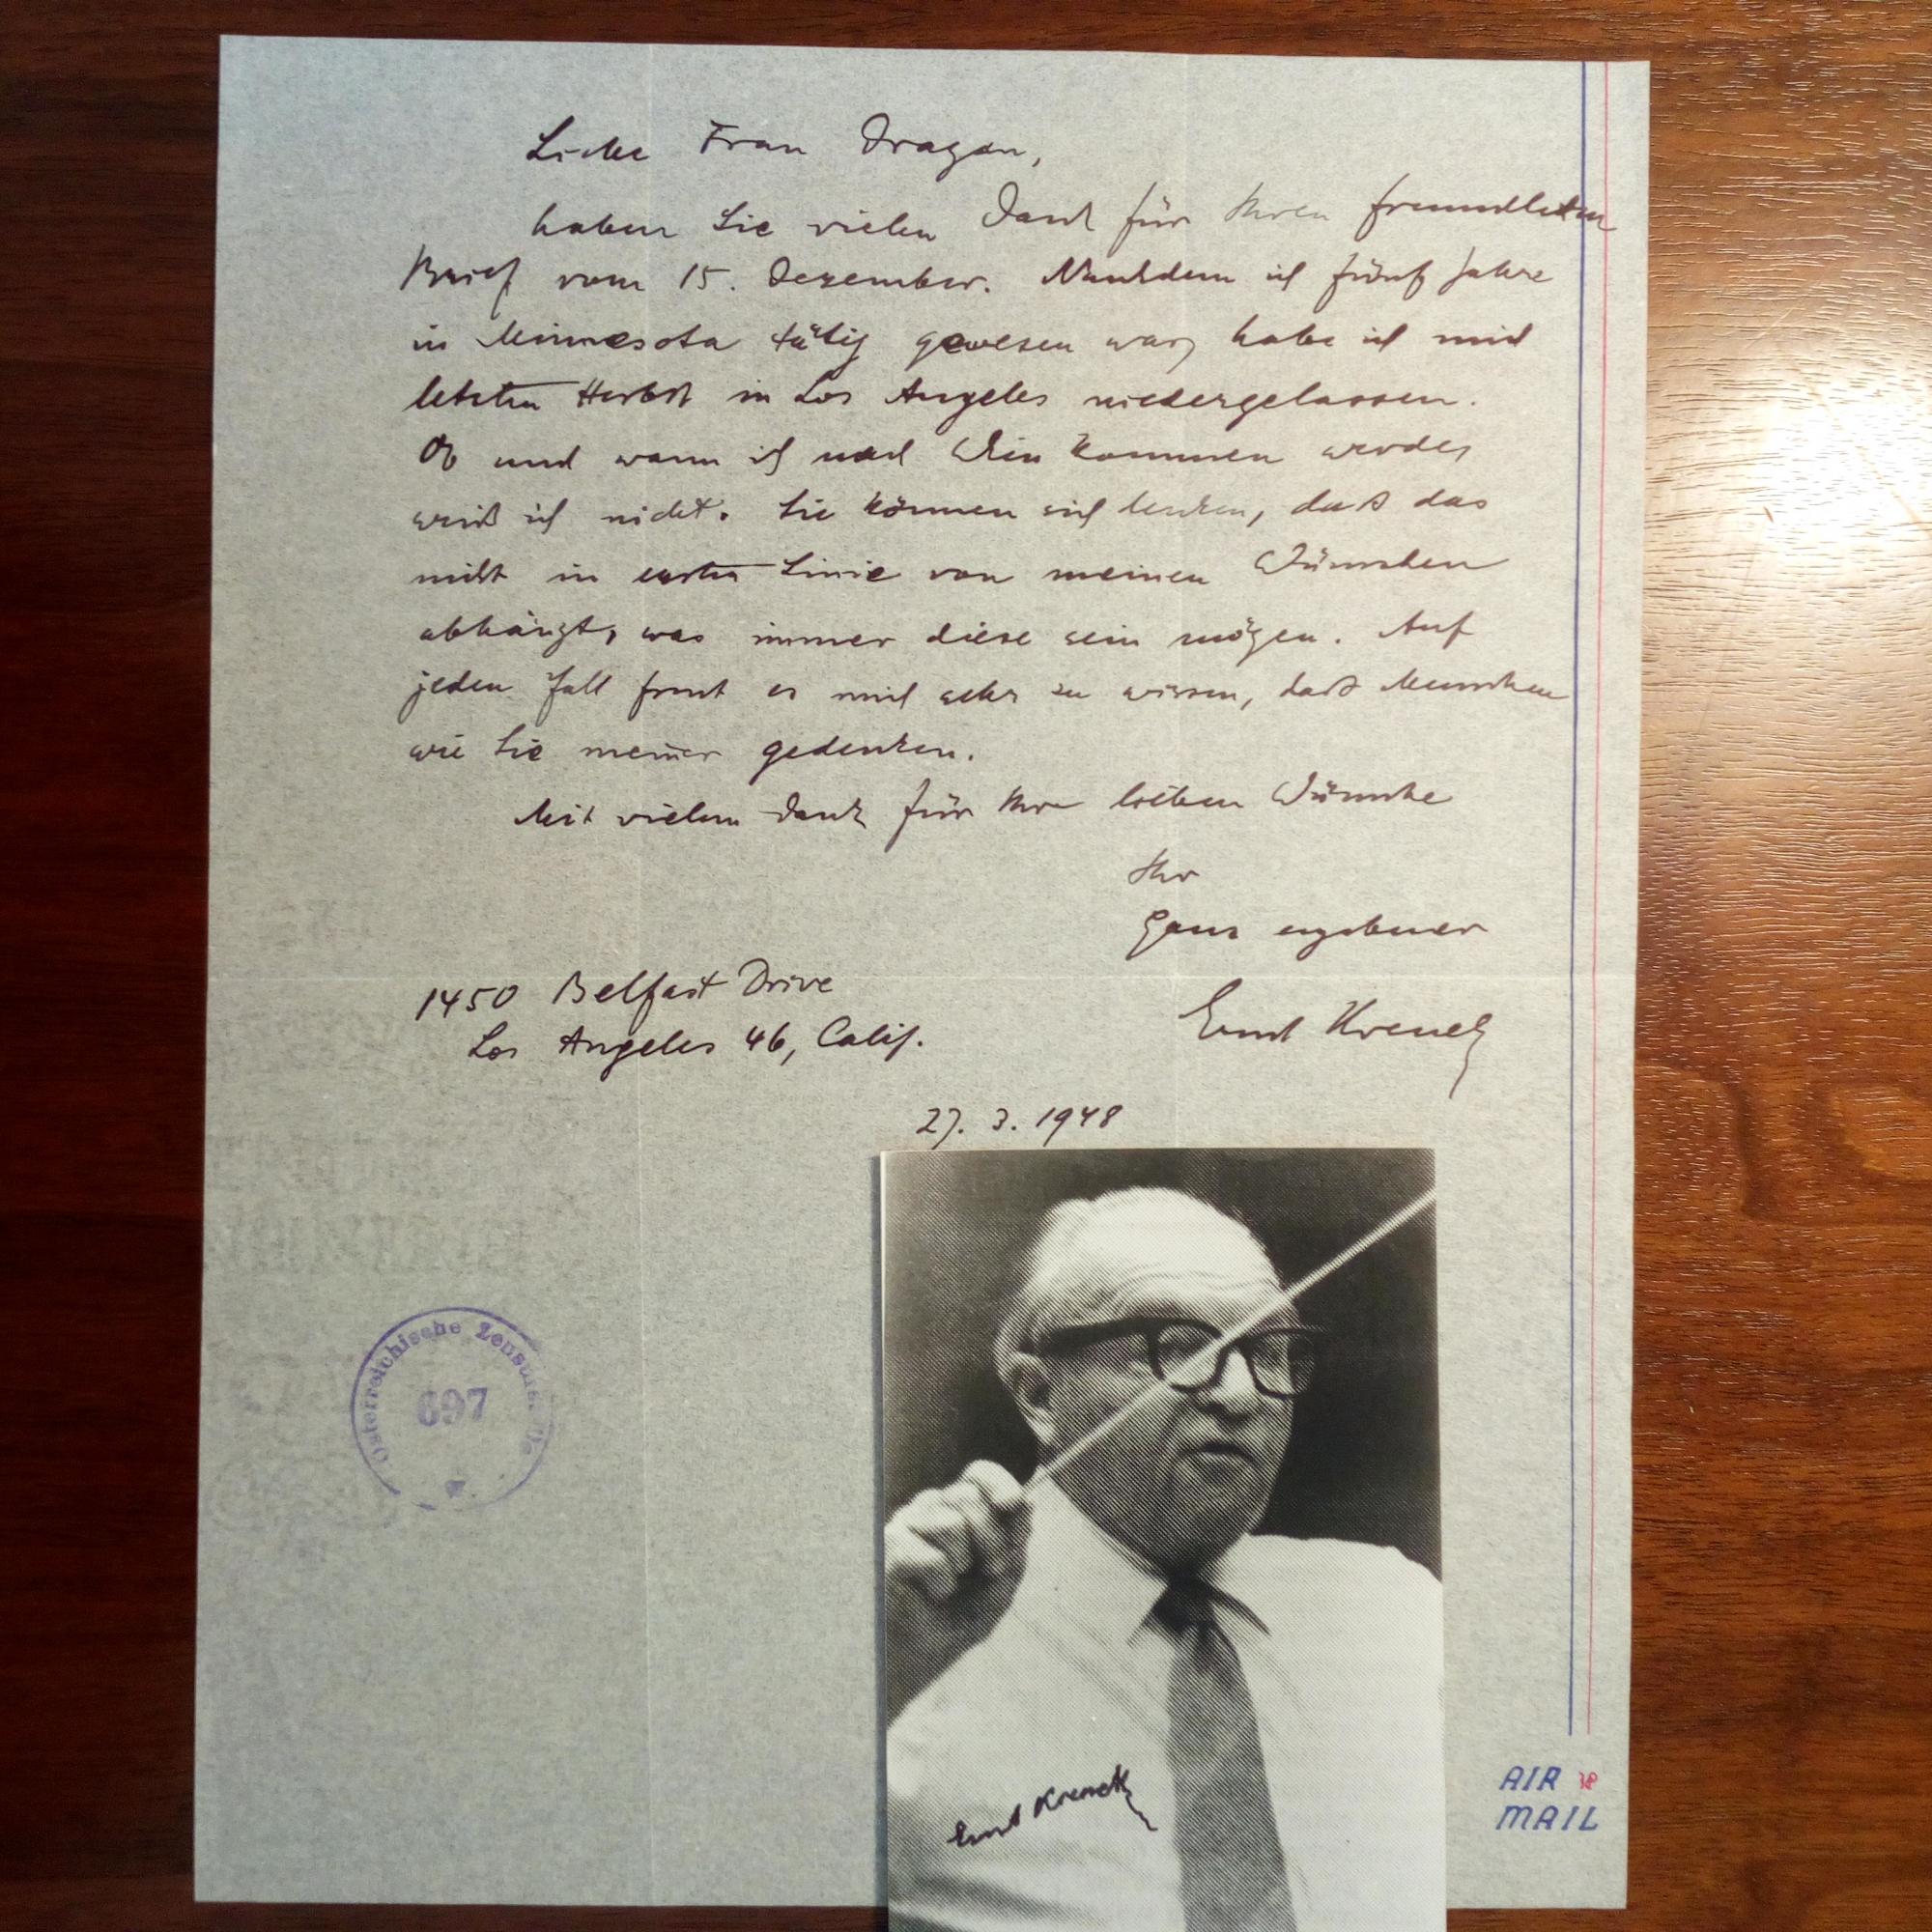 Liebe Frau Dragan,
haben Sie vielen Dank für Ihren freundlichen
Brief vom 15. Dezember. Nachdem ich fünf Jahre
in Minnesota tätig gewesen war, habe ich mich
letzten Herbst in Los Angeles niedergelassen.
Ob und wann ich nach Wien kommen werde,
weiß ich nicht. Sie können sich denken, daß das
nicht in erster Linie von meinen Wünschen
abhängt, was immer diese sein mögen. Auf
jeden Fall freut es mich sehr zu wissen, daß Menschen
wie Sie meiner gedenken.
Mit vielem Dank für Ihre lieben Wünsche
Ihr
ganz ergebener
Ernst Krenek
1450 Belfast Drive
Los Angeles 46, Calif.
27. 3. 1948
Österreichische Zensur
697
Ernst Krenek
AIR
MAIL